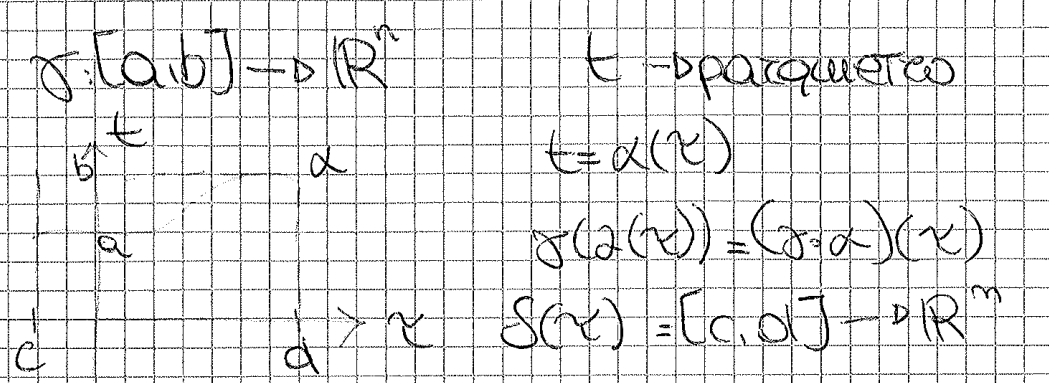 γ:[a,b]→ℝⁿ t → parametro
t
b α t=α(τ)
a γ(α(τ))=(γ∘α)(τ)
c d τ δ(τ)=[c,d]→ℝⁿ